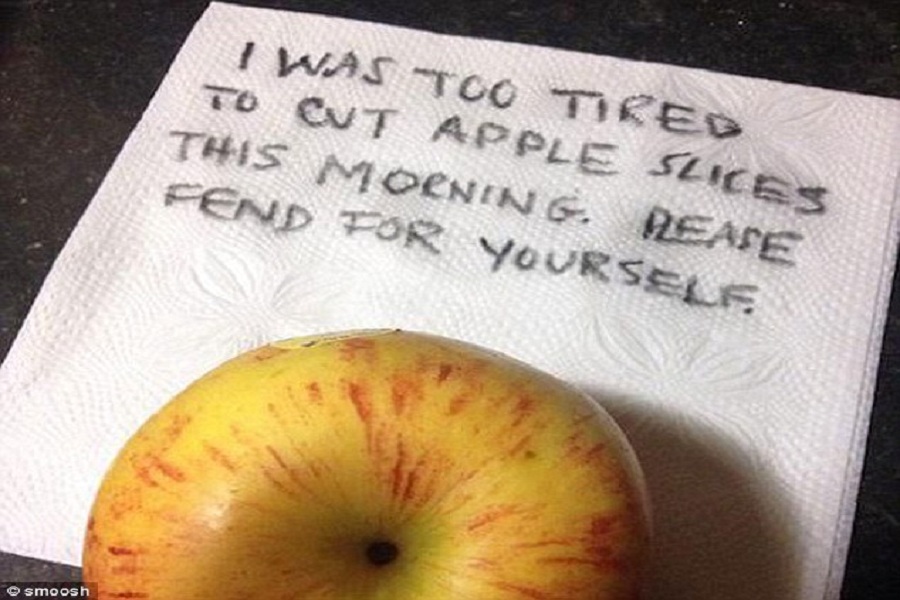 I WAS TOO TIRED
TO CUT APPLE SLICES
THIS MORNING. PLEASE
FEND FOR YOURSELF.
© smoosh